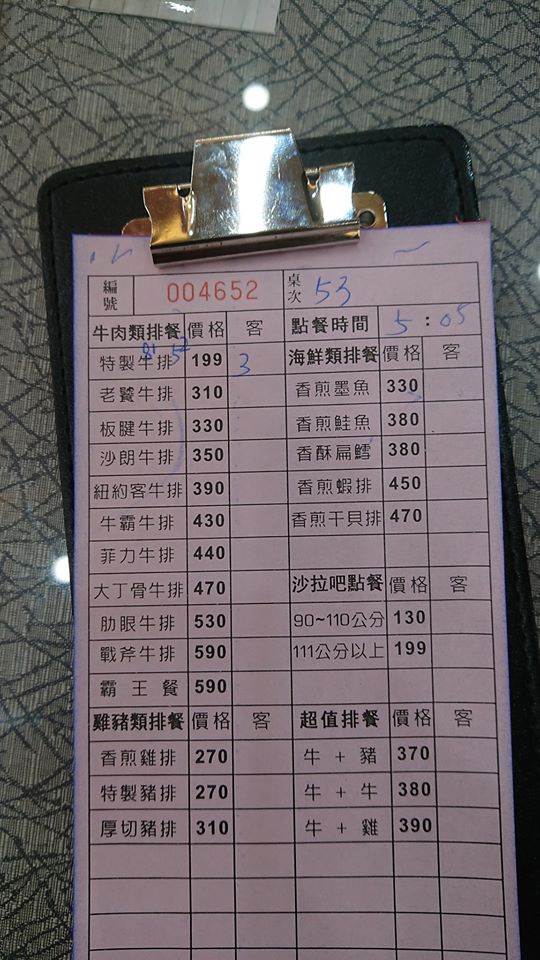 編號 004652 桌次 53
牛肉類排餐 價格 客 點餐時間 5:05
特製牛排 199 3 海鮮類排餐 價格 客
老饕牛排 310 香煎墨魚 330
板腱牛排 330 香煎鮭魚 380
沙朗牛排 350 香酥扁鱈 380
紐約客牛排 390 香煎蝦排 450
牛霸牛排 430 香煎干貝排 470
菲力牛排 440
大丁骨牛排 470 沙拉吧點餐 價格 客
肋眼牛排 530 90~110公分 130
戰斧牛排 590 111公分以上 199
霸王餐 590
雞豬類排餐 價格 客 超值排餐 價格 客
香煎雞排 270 牛 + 豬 370
特製豬排 270 牛 + 牛 380
厚切豬排 310 牛 + 雞 390